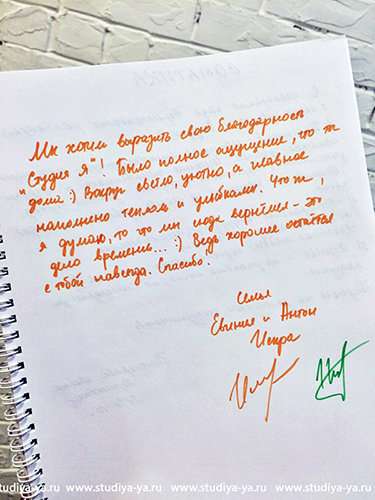 Мы хотим выразить свою благодарность
"Студия Я"! Было полное ощущение, что ты
дома :) Вокруг светло, уютно, а главное
наполнено теплом и улыбками. Что ж,
я думаю, то что мы сюда вернёмся - это
дело времени... :) Ведь хорошее остаётся
с тобой навсегда. Спасибо!
Семья
Евгения и Антон
Искра
www.studiya-ya.ru www.studiya-ya.ru www.studiya-ya.ru